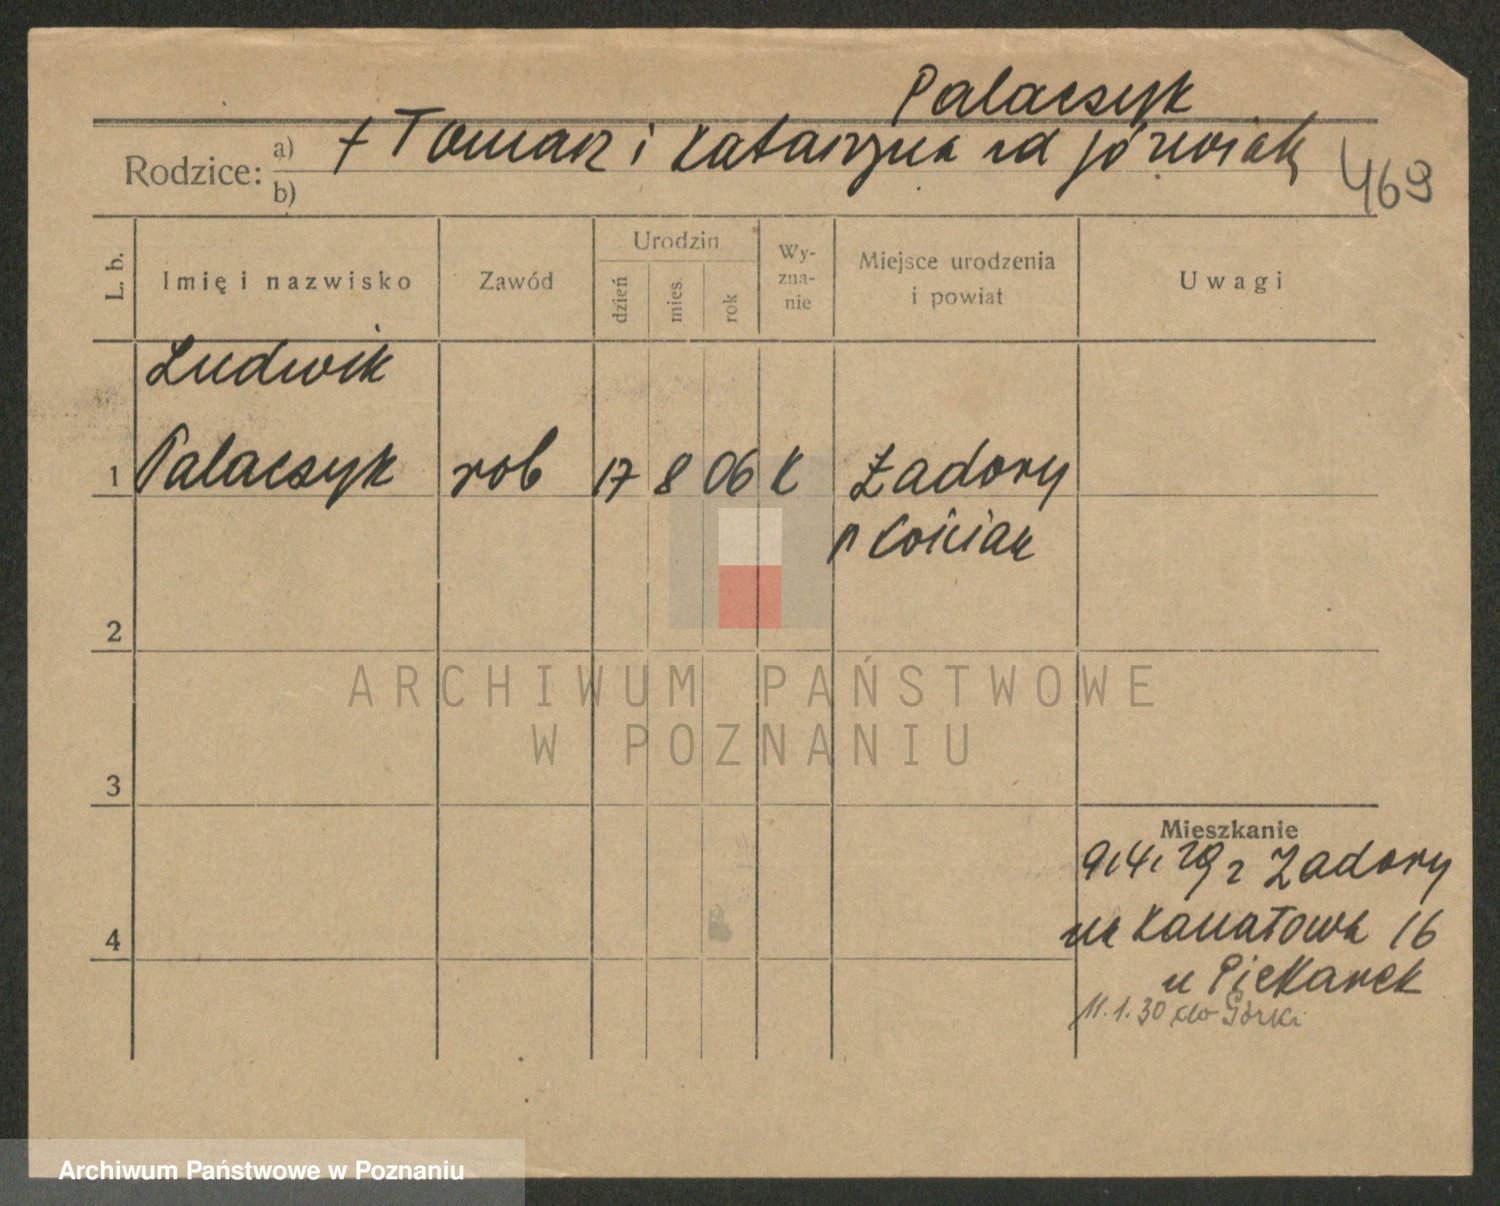 Palaczyk
Rodzice: a) + Tomasz i Katarzyna zd Józwiak
b)
469
L. b.
Imię i nazwisko
Zawód
Urodzin
dzień
mies.
rok
Wy-
zna-
nie
Miejsce urodzenia
i powiat
Uwagi
Ludwik
1 Palaczyk rob 17 8 06 K Zadory
p Kościan
2
ARCHIWUM PAŃSTWOWE
W POZNANIU
3
Mieszkanie
9.4.29 z Zadory
na Kanałowa 16
4
u Piekarek
11.1.30 do Górki
Archiwum Państwowe w Poznaniu